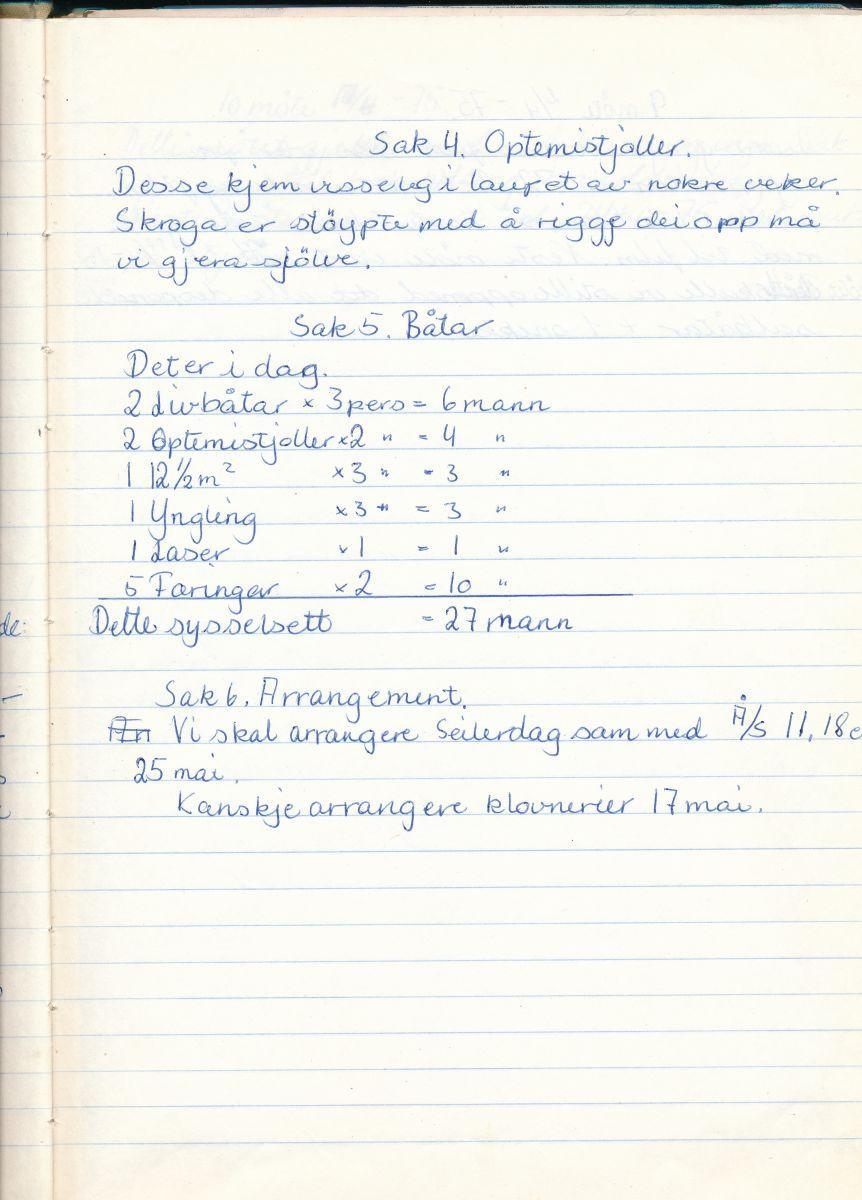 Sak 4. Optemistjoller.
Desse kjem visseleg i laupet av nokre veker.
Skroga er stöypte med å rigge dei opp må
vi gjera sjölve.
Sak 5. Båtar
Det er i dag.
2 livbåtar × 3 pers = 6 mann
2 Optemistjoller × 2 " = 4 "
1 12 1/2 m² × 3 " = 3 "
1 Yngling × 3 " = 3 "
1 Laser × 1 = 1 "
5 Færingar × 2 = 10 "
de:
Dette sysselsett = 27 mann
Sak 6. Arrangement.
Vi skal arrangere Seilerdag sam med Å/S 11, 18
25 mai.
Kanskje arrangere klovnerier 17 mai.